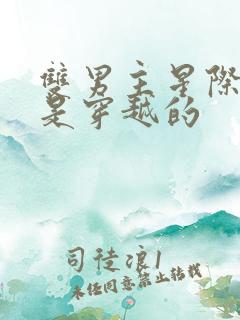 雙男主星際
是穿越的
司徒浪1
未经同意禁止转载